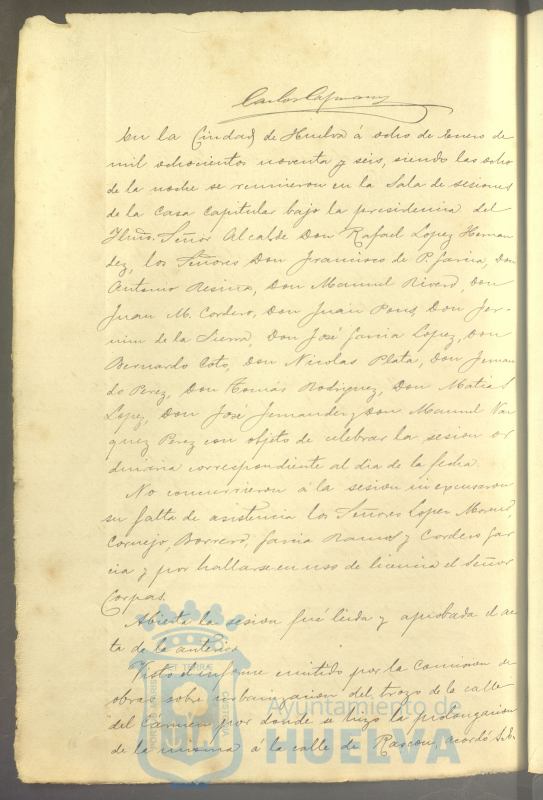 Carlos Capmany
En la Ciudad de Huelva á ocho de Enero de
mil ochocientos noventa y seis, siendo las ocho
de la noche se reunieron en la Sala de sesiones
de la Casa Capitular bajo la presidencia del
Yltmo. Señor Alcalde Don Rafael Lopez Hernan
dez, los Señores Don Francisco de P. Garcia, Don
Antonio Resina, Don Manuel Rivero, Don
Juan M. Cordero, Don Juan Pons, Don Fer-
min de la Sierra, Don José Garcia Lopez, Don
Bernardo Coto, Don Nicolas Plata, Don Fernan
do Perez, Don Tomás Rodriguez, Don Matias
Lopez, Don José Fernandez y Don Manuel Vaz
quez Perez con objeto de celebrar la sesion or
dinaria correspondiente al dia de la fecha.
No concurrieron á la sesion ni excusaron
su falta de asistencia los Señores Lopez Moreno,
Cornejo, Borrero, Garcia Ramos y Cordero Gar
cia y por hallarse en uso de licencia el Señor
Corpas.
Abierta la sesion fué leida y aprobada el ac
ta de la anterior.
Visto el informe emitido por la Comision de
obras sobre urbanizacion del trozo de la calle
del Carmen por donde se hizo la prolongacion
de la misma á la calle de Rascon, acordó S.E.
Ayuntamiento de
HUELVA